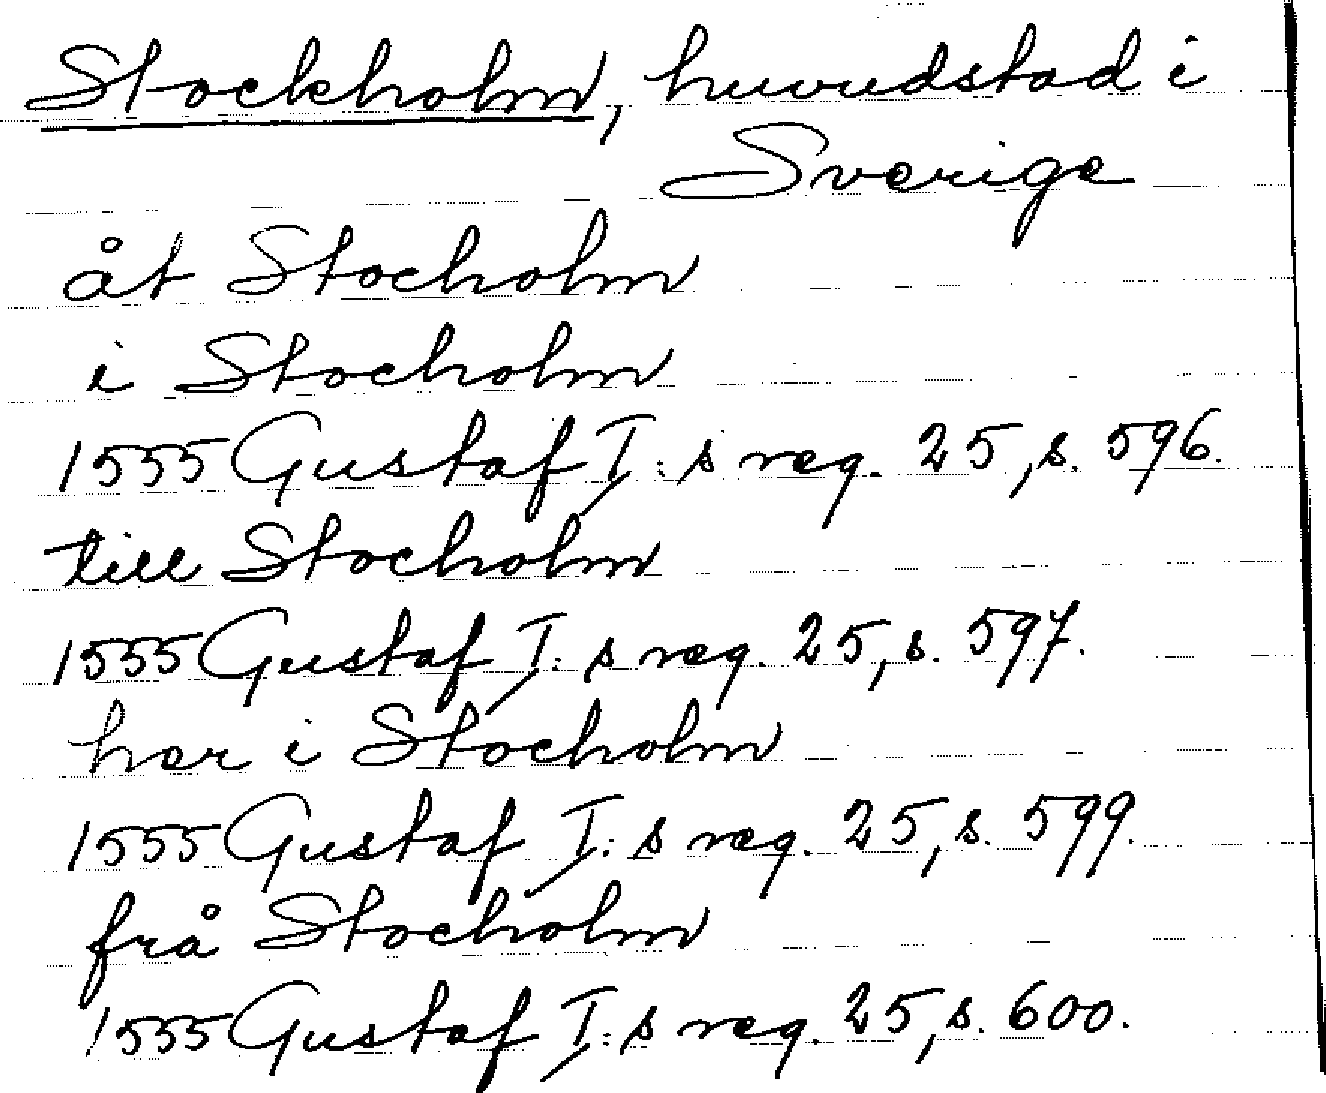 Stockholm, huvudstad i
Sverige
åt Stocholm
i Stocholm
1555 Gustaf I:s reg. 25, s. 596.
till Stocholm
1555 Gustaf I:s reg. 25, s. 597.
her i Stocholm
1555 Gustaf I:s reg. 25, s. 599.
frå Stocholm
1555 Gustaf I:s reg. 25, s. 600.